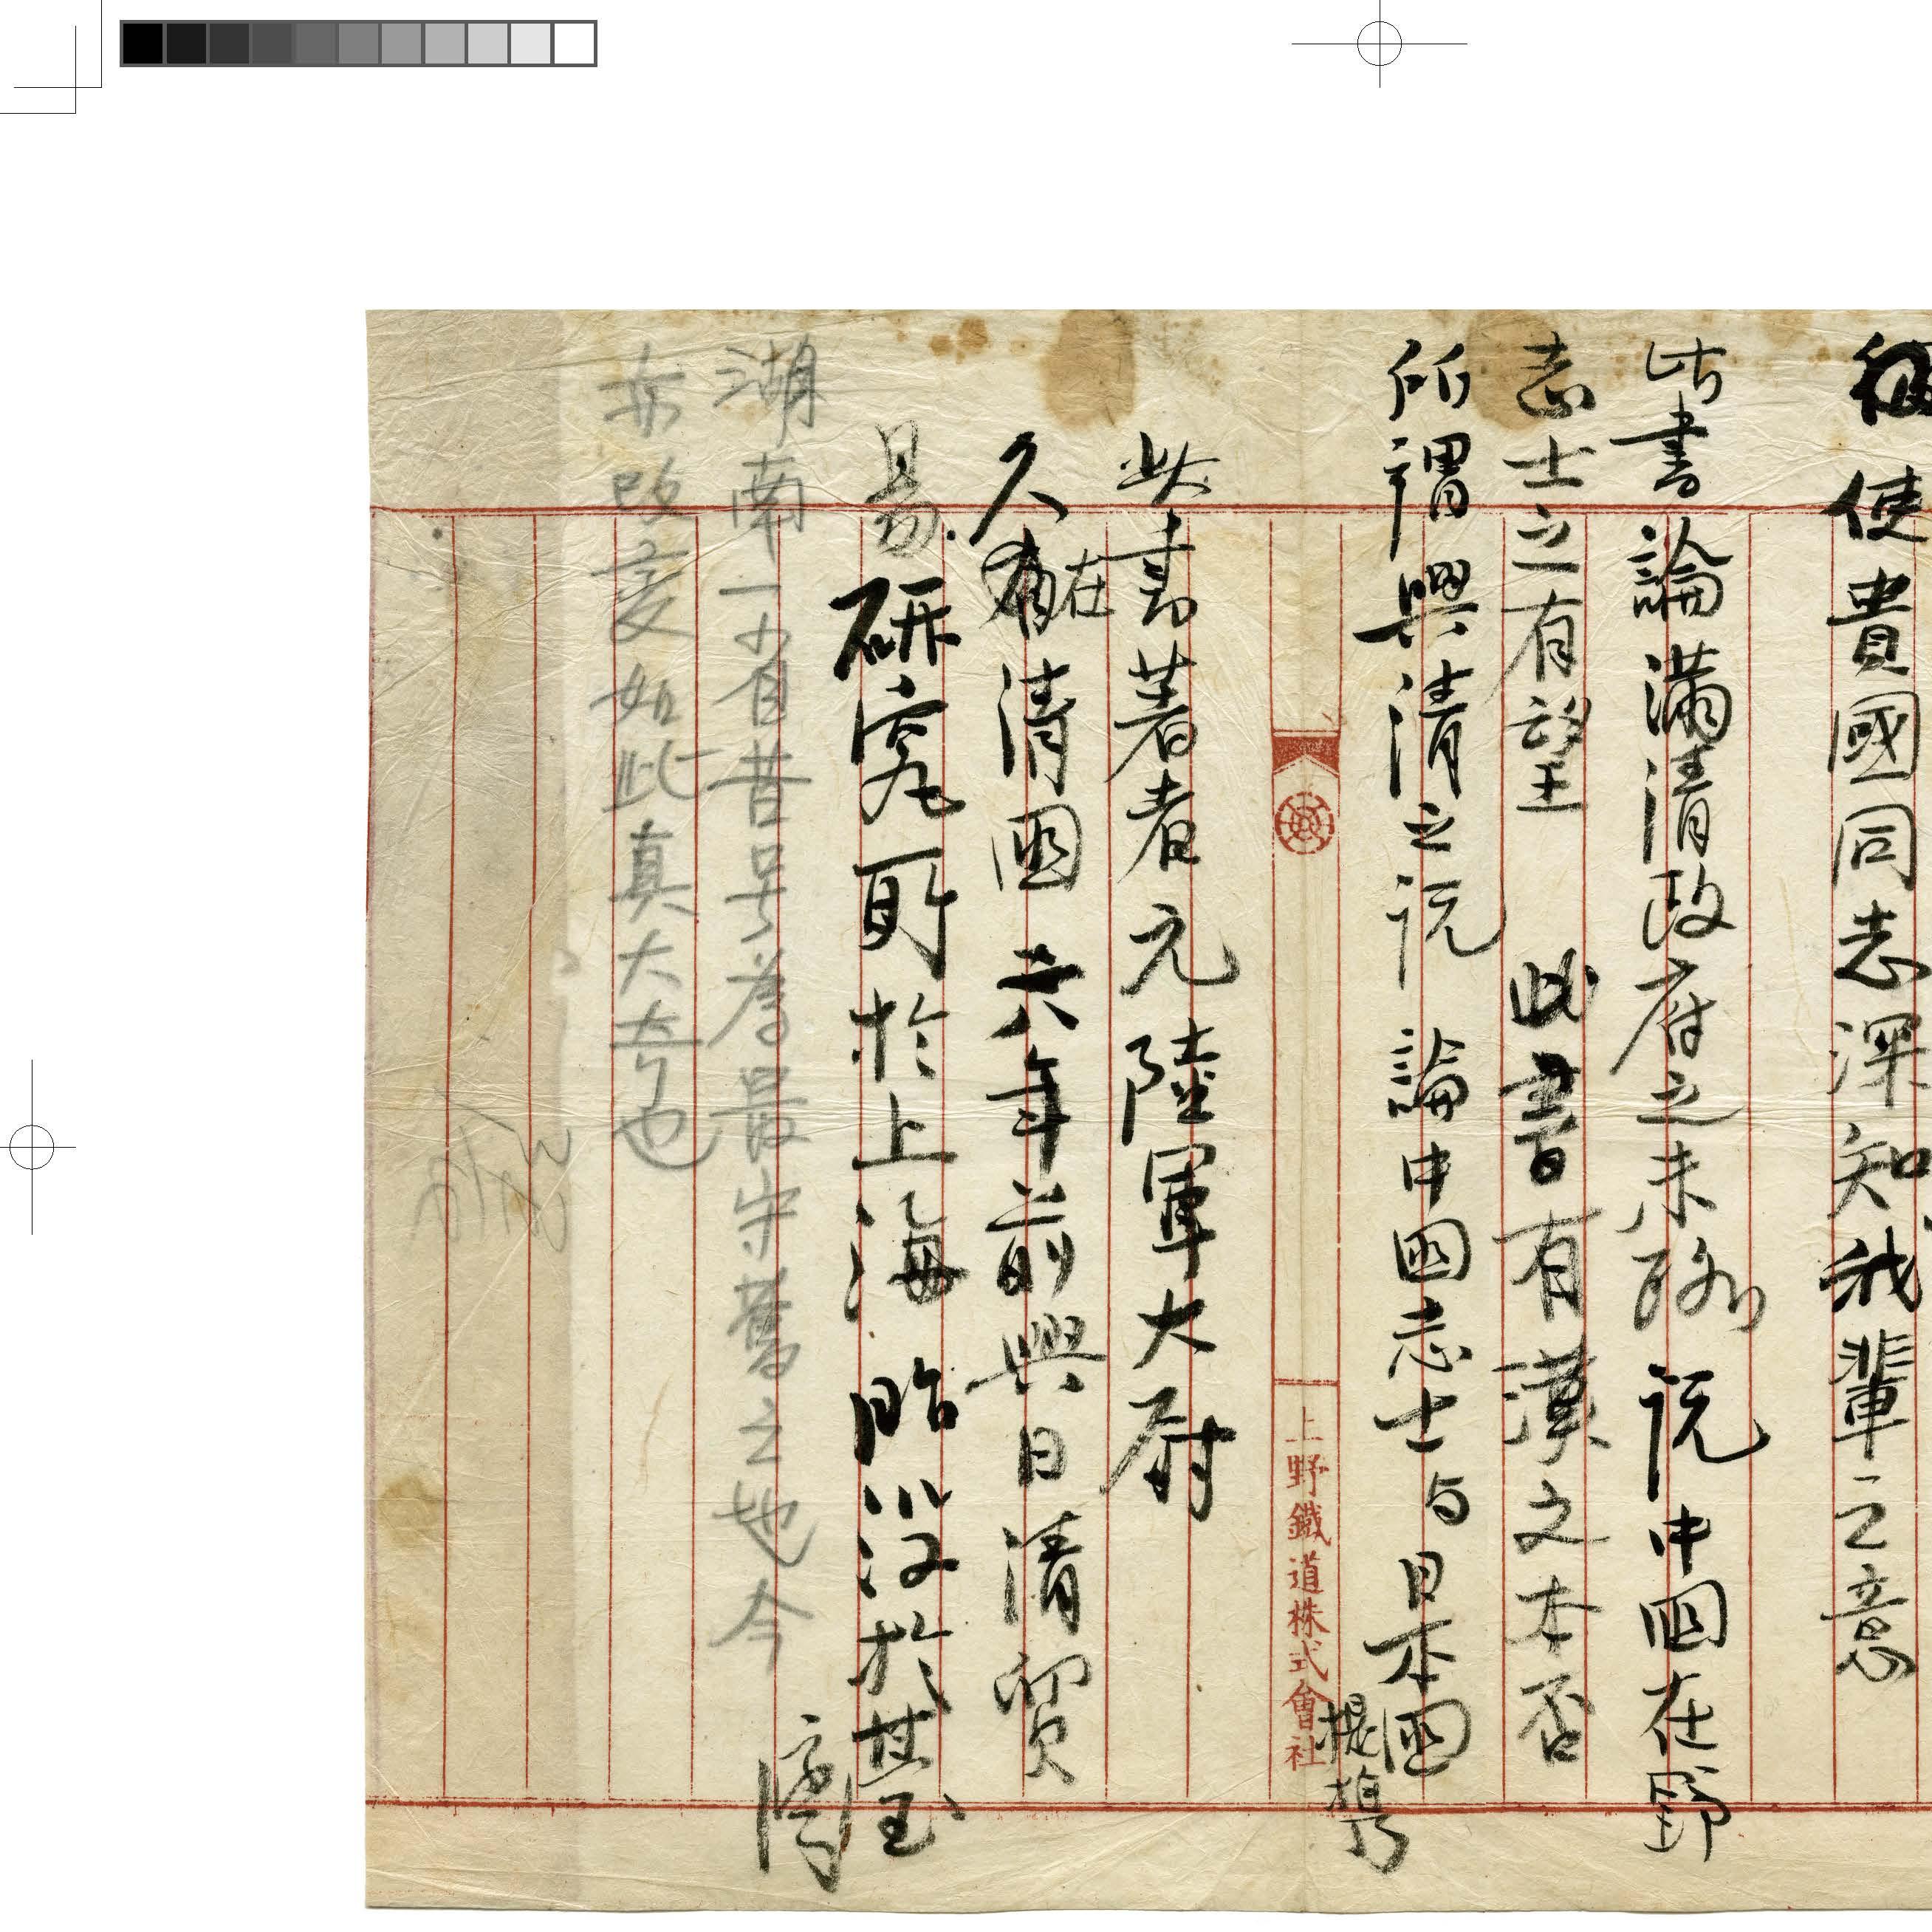 彼使貴國同志深知我輩之意
此書論滿清政府之末路 説中國在野
志士之有望 此書有漢文本否
所謂興清之説 論中國志士与日本國
提携
上野鐵道株式會社
此書著者元陸軍大尉
久在清國 六年前興日清貿
易研究所於上海 後没於基
湖南一省昔号為最守舊之地今
亦改変如此真大奇也